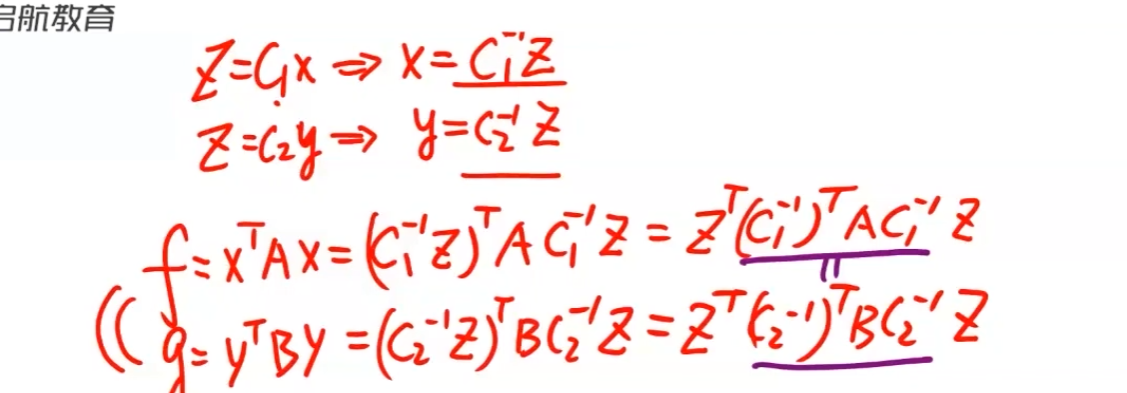 启航教育
Z=C₁x ⇒ x=C₁⁻¹Z
Z=C₂y ⇒ y=C₂⁻¹Z
f=xᵀAx=(C₁⁻¹Z)ᵀAC₁⁻¹Z=Zᵀ(C₁⁻¹)ᵀAC₁⁻¹Z
g=yᵀBy=(C₂⁻¹Z)ᵀBC₂⁻¹Z=Zᵀ(C₂⁻¹)ᵀBC₂⁻¹Z